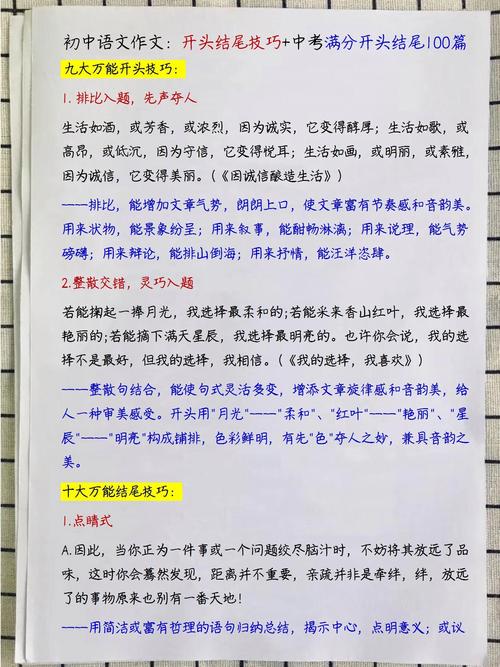 初中语文作文：开头结尾技巧+中考满分开头结尾100篇
九大万能开头技巧：
1. 排比入题，先声夺人
生活如酒，或芳香，或浓烈，因为诚实，它变得醇厚；生活如歌，或
高昂，或低沉，因为守信，它变得悦耳；生活如画，或明丽，或素雅，
因为诚信，它变得美丽。（《因诚信酿造生活》）
——排比，能增加文章气势，朗朗上口，使文章富有节奏感和音韵美。
用来状物，能景象纷呈；用来叙事，能酣畅淋漓；用来说理，能气势
磅礴；用来辩论，能排山倒海；用来抒情，能汪洋恣肆。
2.整散交错，灵巧入题
若能掬起一捧月光，我选择最柔和的;若能采来香山红叶，我选择最
艳丽的;若能摘下满天星辰，我选择最明亮的。也许你会说，我的选
择不是最好，但我的选择，我相信。（《我的选择，我喜欢》）
——整散句结合，能使句式灵活多变，增添文章旋律感和音韵美，给
人一种审美感受。开头用"月光"——"柔和"、"红叶"——"艳丽"、"星
辰"——"明亮"构成铺排，色彩鲜明，有先"色"夺人之妙，兼具音韵之
美。
十大万能结尾技巧：
1.点睛式
A.因此，当你正为一件事或一个问题绞尽脑汁时，不妨将其放远了品
味，这时你会蓦然发现，距离并不重要，亲疏并非是牵绊，绊，放远
了的事物原来也别有一番天地！
——用简洁或富有哲理的语句归纳总结，揭示中心，点明意义；或议